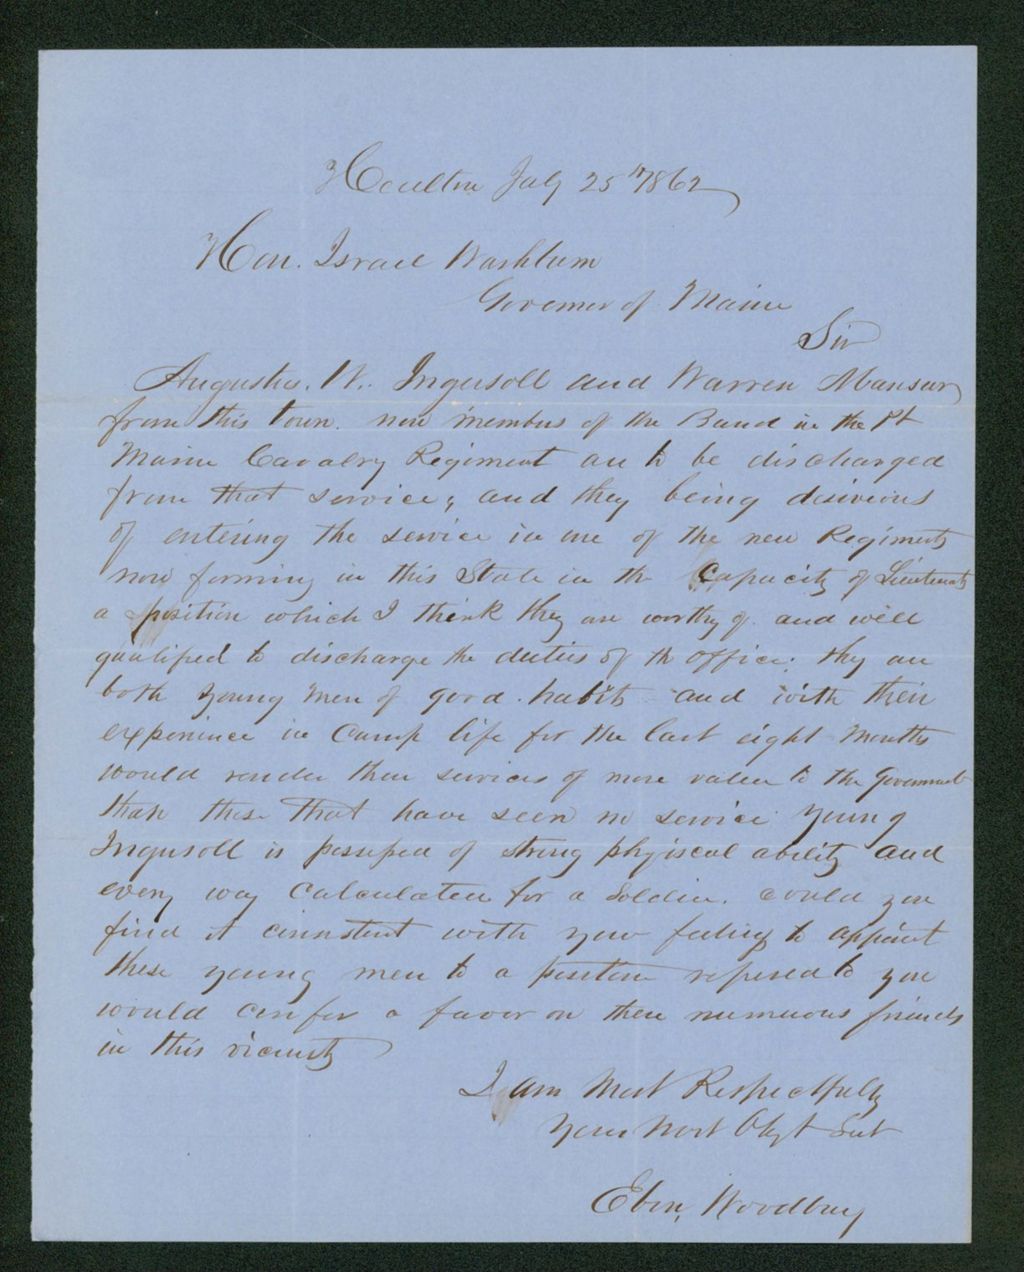 Houlton July 25th 1862
Hon. Israel Washburn
Governor of Maine
Sir
Augustus. W. Ingersoll and Warren Mansur
from this town. now members of the Band in the 1st
Maine Cavalry Regiment are to be discharged
from that service; and they being desireous
of entering the service in one of the new Regiments
now forming in this State in the Capacity of Lieutenants
a position which I think they are worthy of. and well
qualified to discharge the duties of the office. they are
both young men of good habits and with their
experience in Camp life for the last eight Months
would render their services of more value to the Government
than those that have seen no service young
Ingersoll is possessed of strong physical ability and
every way Calculated for a Soldier. could you
find it consistent with your feelings to appoint
these young men to a position refered to you
would confer a favor on their numerous friends
in this vicinity
I am Most Respectfully
Your Most Obgt Svt
Eben, Woodbury